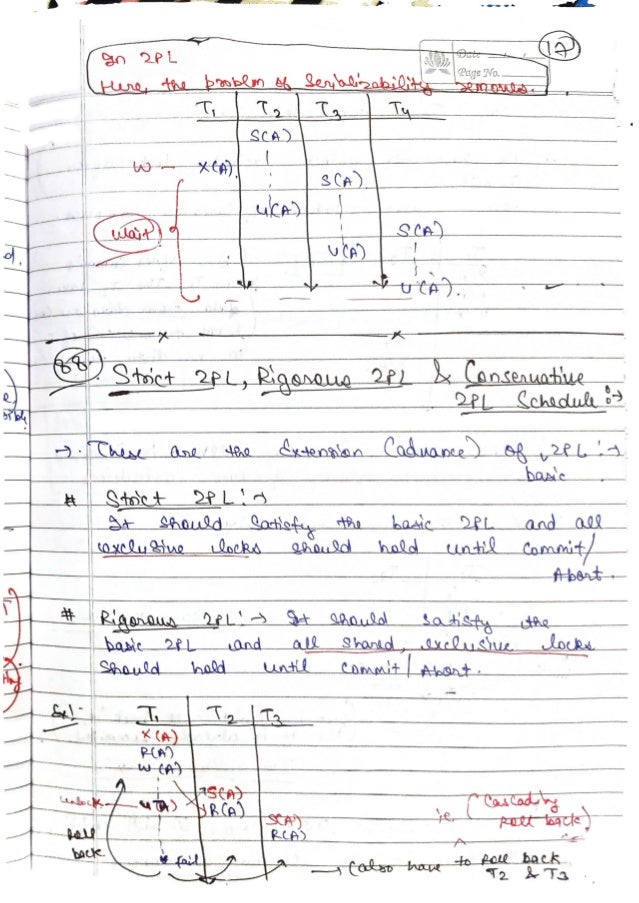 17
Date
Page No.
In 2PL
Here, the problm of Serializability removes.
T1 T2 T3 T4
S(A)
W — X(A)
S(A)
U(A)
Wait
S(A)
U(A)
U(A).
88. Strict 2PL, Rigorous 2PL & Conservative
2PL Schedule :→
→. These are the Extension (advance) of basic 2PL :→
# Strict 2PL :→
It should satisfy the basic 2PL and all
exclusive locks should hold until commit/
Abort.
# Rigorous 2PL :→ It should satisfy the
basic 2PL and all shared, exclusive locks
should hold until commit/Abort.
Ex:- T1 T2 T3
X(A)
R(A)
W(A)
S(A)
unlock — U(A) R(A)
S(A)
R(A)
i.e. (Cascading
Roll back)
Roll
back
* fail
→ (also have to Roll back
T2 & T3